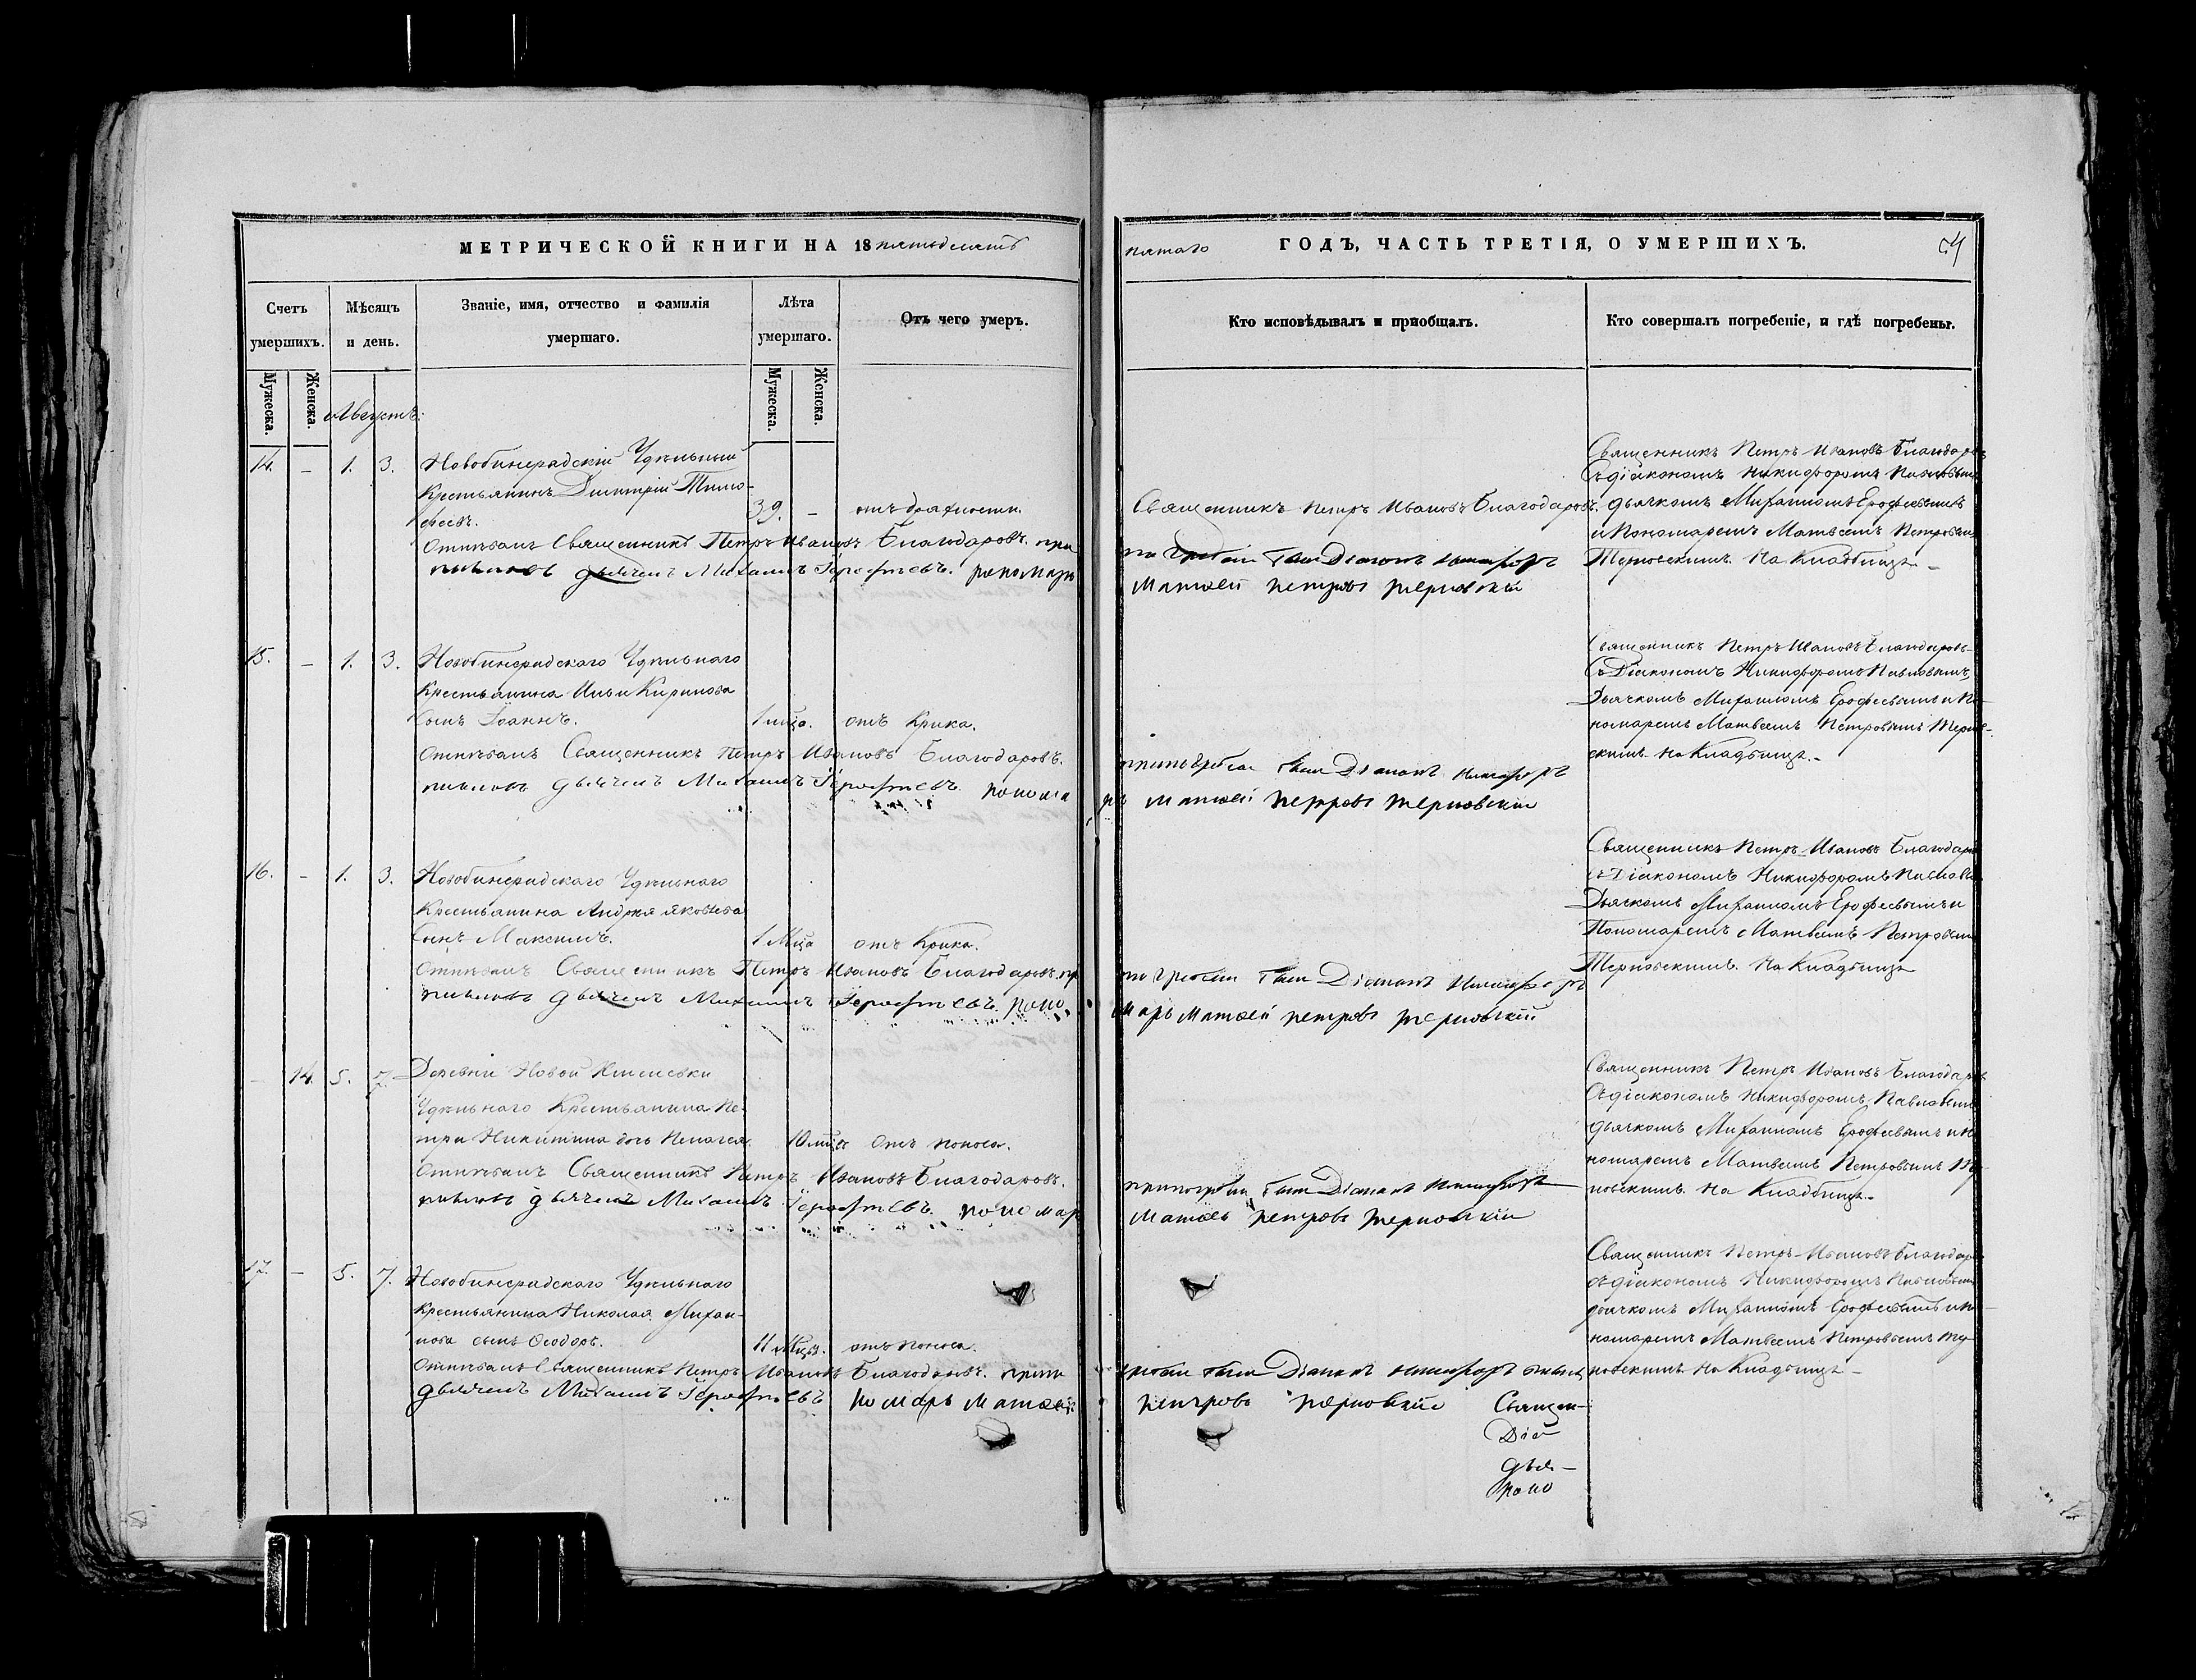 МЕТРИЧЕСКОЙ КНИГИ НА 18 пятьдесятъ
Счетъ умершихъ.
Мѣсяцъ и день.
Званіе, имя, отчество и фамилія умершаго.
Лѣта умершаго.
Отъ чего умеръ.
Мужеска.
Женска.
Мужеска.
Женска.
Августъ.
14. – 1. 3. Новобинарадскій Удѣльный
Крестьянинъ Димитрій Тимо-
феевъ. 39. – отъ
Отпѣвалъ Священникъ Петръ Ивановъ Благодаровъ. при
дьячекъ Михаилъ Іерофѣевъ. пономарь
15. – 1. 3. Новобинарадскаго Удѣльнаго
Крестьянина Ильи Кирилова
Сынъ Іоаннъ. 1 мца. отъ Крика.
Отпѣвалъ Священникъ Петръ Ивановъ Благодаровъ.
дьячекъ Михаилъ Іерофѣевъ. понома
16. – 1. 3. Новобинарадскаго Удѣльнаго
Крестьянина Андрея Яковлева
Сынъ Максимъ. 1 Мца отъ Крика.
Отпѣвалъ Священникъ Петръ Ивановъ Благодаровъ. пр
дьячекъ Михаилъ Іерофѣевъ. поно
– 14. 5. 7. Деревни Новой
Удѣльнаго Крестьянина Пе-
тра Никитина дочь Пелагея. 10 мцъ отъ поноса.
Отпѣвалъ Священникъ Петръ Ивановъ Благодаровъ.
дьячекъ Михаилъ Іерофѣевъ. пономар
17. – 5. 7. Новобинарадскаго Удѣльнаго
Крестьянина Николая Михаи-
лова сынъ Ѳеодоръ. 11 Мцъ. отъ поноса.
Отпѣвалъ Священникъ Петръ Ивановъ Благодаровъ. при
дьячекъ Михаилъ Іерофѣевъ Матвей
пятаго ГОДЪ, ЧАСТЬ ТРЕТІЯ, О УМЕРШИХЪ.
Кто исповѣдывалъ и пріобщалъ.
Кто совершалъ погребеніе, и гдѣ погребены.
Священникъ Петръ Ивановъ Благодаровъ.
погребеніи былъ Діаконъ Никифоръ
Матвей Петровъ Терновскій
Священникъ Петръ Ивановъ Благодаровъ
Съ діакономъ Никифоромъ Павловымъ
дьячкомъ Михаиломъ Ерофеевымъ
и Пономаремъ Матвеемъ Петровым
Терновскимъ. На Кладбищѣ.
былъ Діаконъ Никифоръ
рь Матвей Петровъ Терновскій
Священникъ Петръ Ивановъ Благодаровъ
Съ Діакономъ Никифоромъ Павловымъ,
Дьячкомъ Михаиломъ Ерофеевымъ и По-
номаремъ Матвеемъ Петровымъ Тернов-
скимъ. На Кладбищѣ.
погребеніи былъ Діаконъ Никифоръ
марь Матвей Петровъ Терновскій
Священникъ Петръ Ивановъ Благодаров
съ Діакономъ Никифоромъ Павлов
Дьячкомъ Михаиломъ Ерофеевымъ и
Пономаремъ Матвеемъ Петровым
Терновскимъ. На Кладбищѣ
былъ Діаконъ Никифоръ
Матвей Петровъ Терновскій
Священникъ Петръ Ивановъ Благодаров
Съ діакономъ Никифоромъ Павловым
дьячкомъ Михаиломъ Ерофеевымъ и По
номаремъ Матвеемъ Петровымъ Тер-
новскимъ. На Кладбищѣ.
гребеніи былъ Діаконъ Никифоръ
Петровъ Терновскій
Священникъ Петръ Ивановъ Благодар
съ діакономъ Никифоромъ Павловым
дьячкомъ Михаиломъ Ерофеевымъ и по
номаремъ Матвеемъ Петровымъ Тер-
новскимъ. На Кладбищѣ
Священ-
Діа
дья-
поно